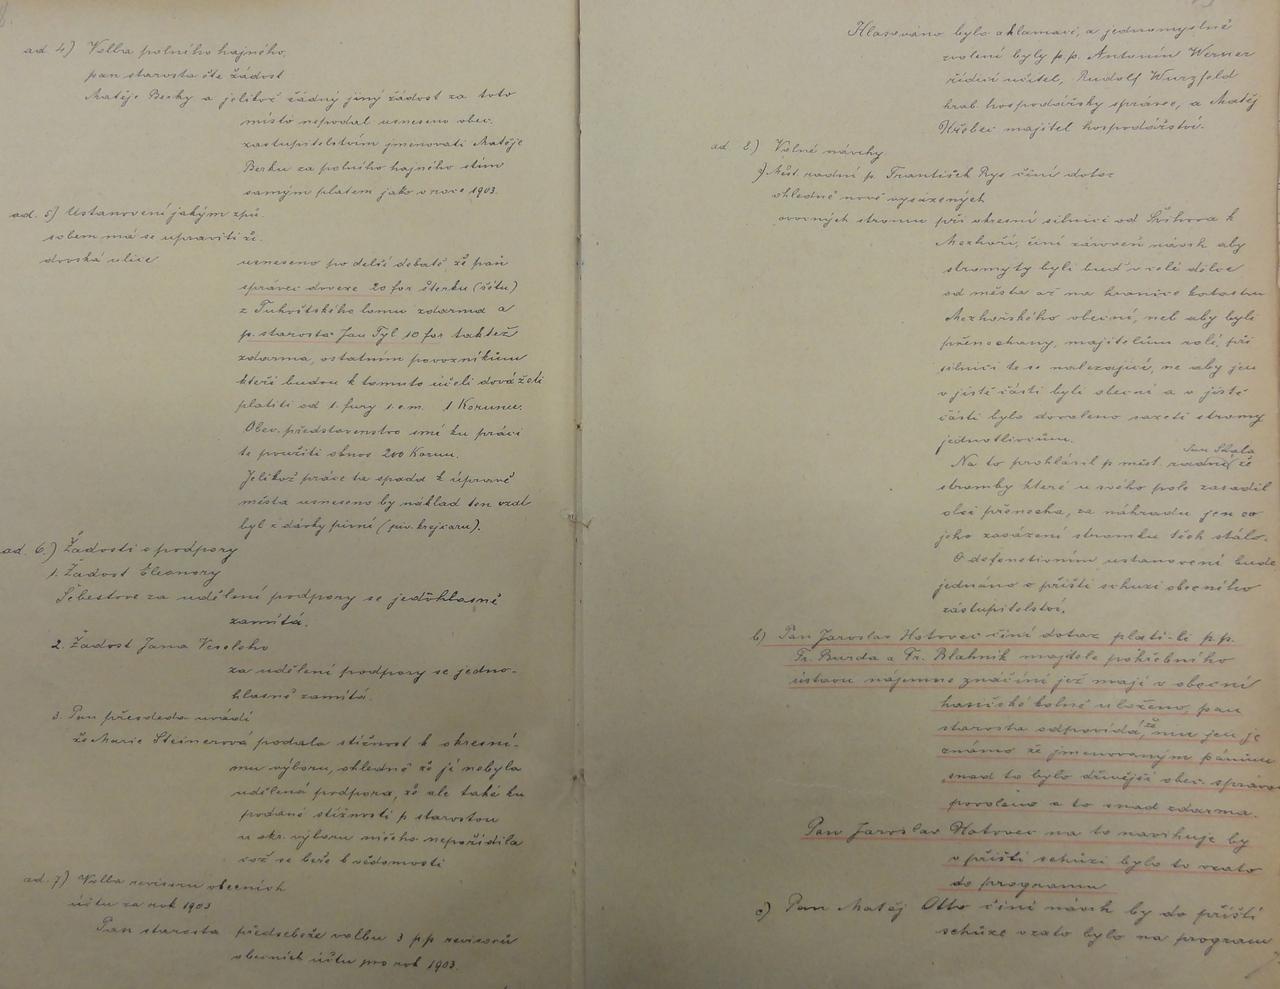 ad 4) Volba polního hajného.
pan starosta čte žádost
Matěje Berky a jelikož žádný jiný žádost za toto
místo nepodal usneseno obec.
zastupitelstvím jmenovati Matěje
Berku za polního hajného stím
samým platem jako v roce 1903.
ad. 5) Ustanovení jakým způ-
sobem má se upraviti ži-
dovská ulice
usneseno po delší debatě, že pan
správec doveze 20 for štěrku (šétu)
z Tuhošťského lomu zdarma a
p. starosta Jan Tyl 10 for taktež
zdarma, ostatním povozníkům
kteří budou k tomuto účeli dovážeti
platiti od 1. fury 1 c.m. 1 Korunu.
Obec. představenstvo smí ku práci
té použíti obnos 200 Korun.
Jelikož práce ta spadá k úpravě
města usneseno by náklad ten vzat
byl z dávky pivní (piv. krejcaru).
ad. 6.) Žádosti o podpory
1. Žádost Eleonory
Šebestové za udělení podpory se jednohlasně
zamítá.
2. Žádost Jana Veselého
za udělení podpory se jedno-
hlasně zamítá.
3. Pan předseda uvádí
že Marie Steinerová podala stížnost k okresní-
mu výboru, ohledně že jí nebyla
udělena podpora, že ale také ku
podané stížnosti p. starostou
u okr. výboru ničeho nepořídila
což se béře k vědomosti
ad. 7) Volba revisorů obecních
účtů za rok 1903
Pan starosta předsebéře volbu 3 pp revisorů
obecních účtů pro rok 1903.
Hlasováno bylo aklamací, a jednomyslně
zvoleni byly p.p. Antonín Werner
řídící učitel, Rudolf Wurzfeld
hrab. hospodářský správce, a Matěj
Hřebec majitel hospodářství.
ad 8.) Volné návrhy
Měst. radní p. František Rys činí dotaz
ohledně nově vysázených
ovocných stromů při okresní silnici od Švihova k
Mezhoří, činí zároveň návrh aby
stromy ty byli buď v celé délce
od města až na hranice katastru
Mezhořského obecní, neb aby byli
přenechany, majitelům rolí, při
silnici té se nalezající, ne aby jen
v jisté části byli obecní a v jisté
části bylo dovoleno sázeti stromy
jednotlivcům.
Jan Skala
Na to prohlásil p měst. radní že
stromky které u svého pole zasadil
obci přenechá, za náhradu jen co
jeho zasázení stromku těch stálo.
O defenetivním ustanovení bude
jednáno v příští schuzi obecního
zastupitelství.
b) Pan Jaroslav Hotovec činí dotaz platí-li p.p.
Fr. Burda a Fr. Blahník majitelé pohřebního
ústavu nájemné z náčiní jež mají v obecní
hasičské kolně uloženo, pan
starosta odpovídá, že mu jen je
známo že jmenovaným pánům
snad to bylo dřívější obec. správou
povoleno a to snad zdarma.
Pan Jaroslav Hotovec na to navrhuje by
v příští schůzi bylo to vzato
do programu
c) Pan Matěj Otto činí návrh by do příští
schůze vzato bylo na program